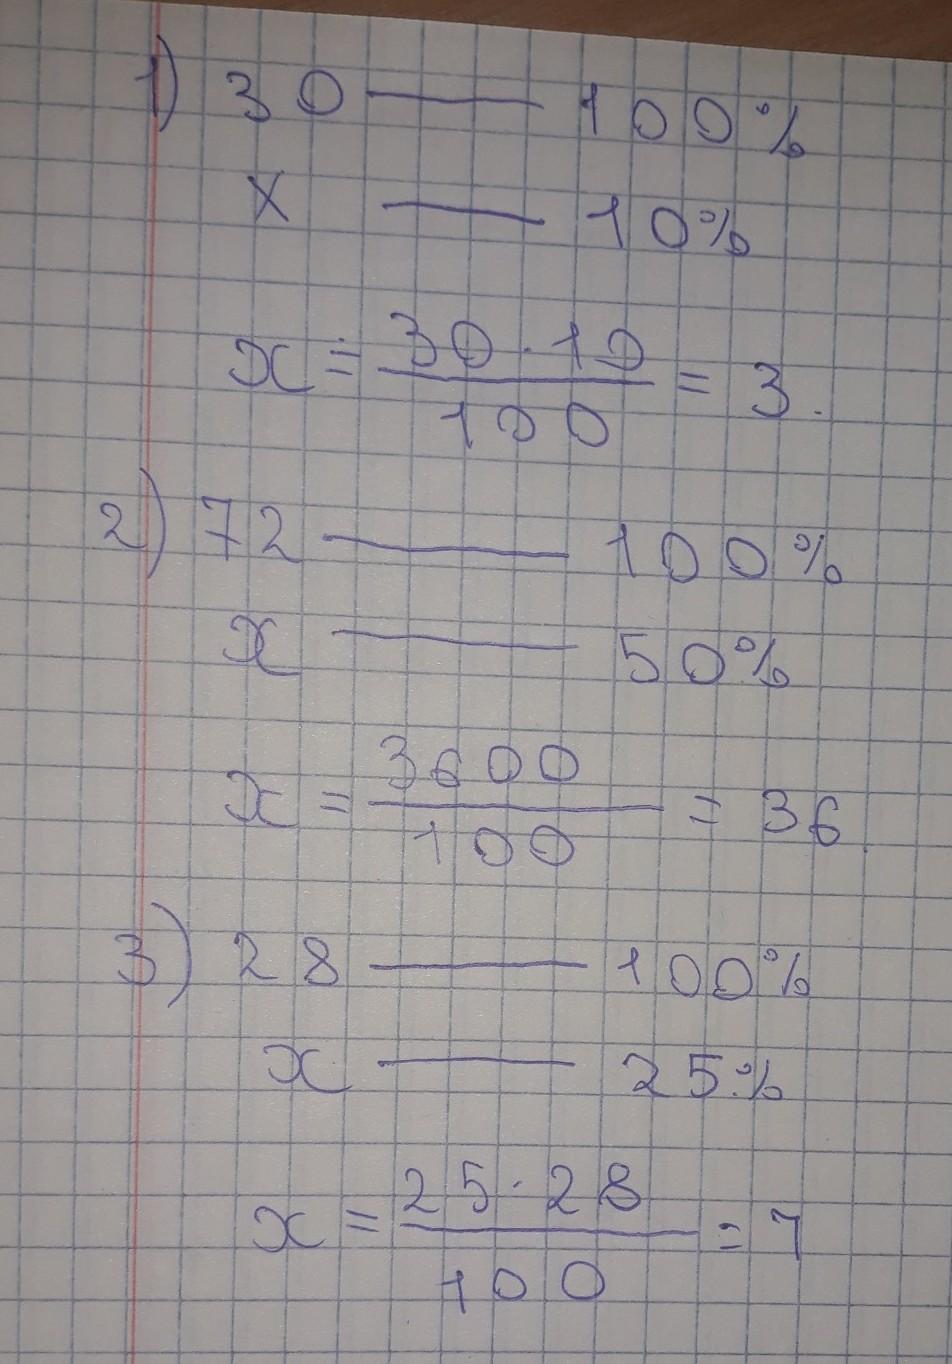 1) 30 — 100%
x — 10%
x = 30·10/100 = 3.
2) 72 — 100%
x — 50%
x = 3600/100 = 36.
3) 28 — 100%
x — 25%
x = 25·28/100 = 7